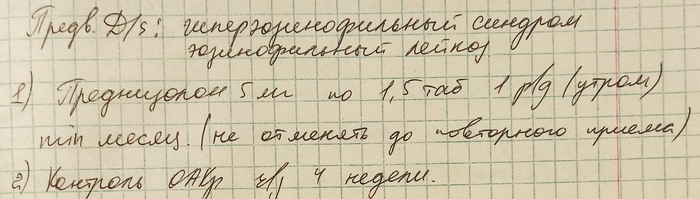 Предв. D/s: гиперэозинофильный синдром
эозинофильный лейкоз
1) Преднизолон 5 мг по 1,5 таб 1 р/д (утром)
min месяц. (не отменять до повторного приема)
2) Контроль ОАКр ч/з 4 недели.